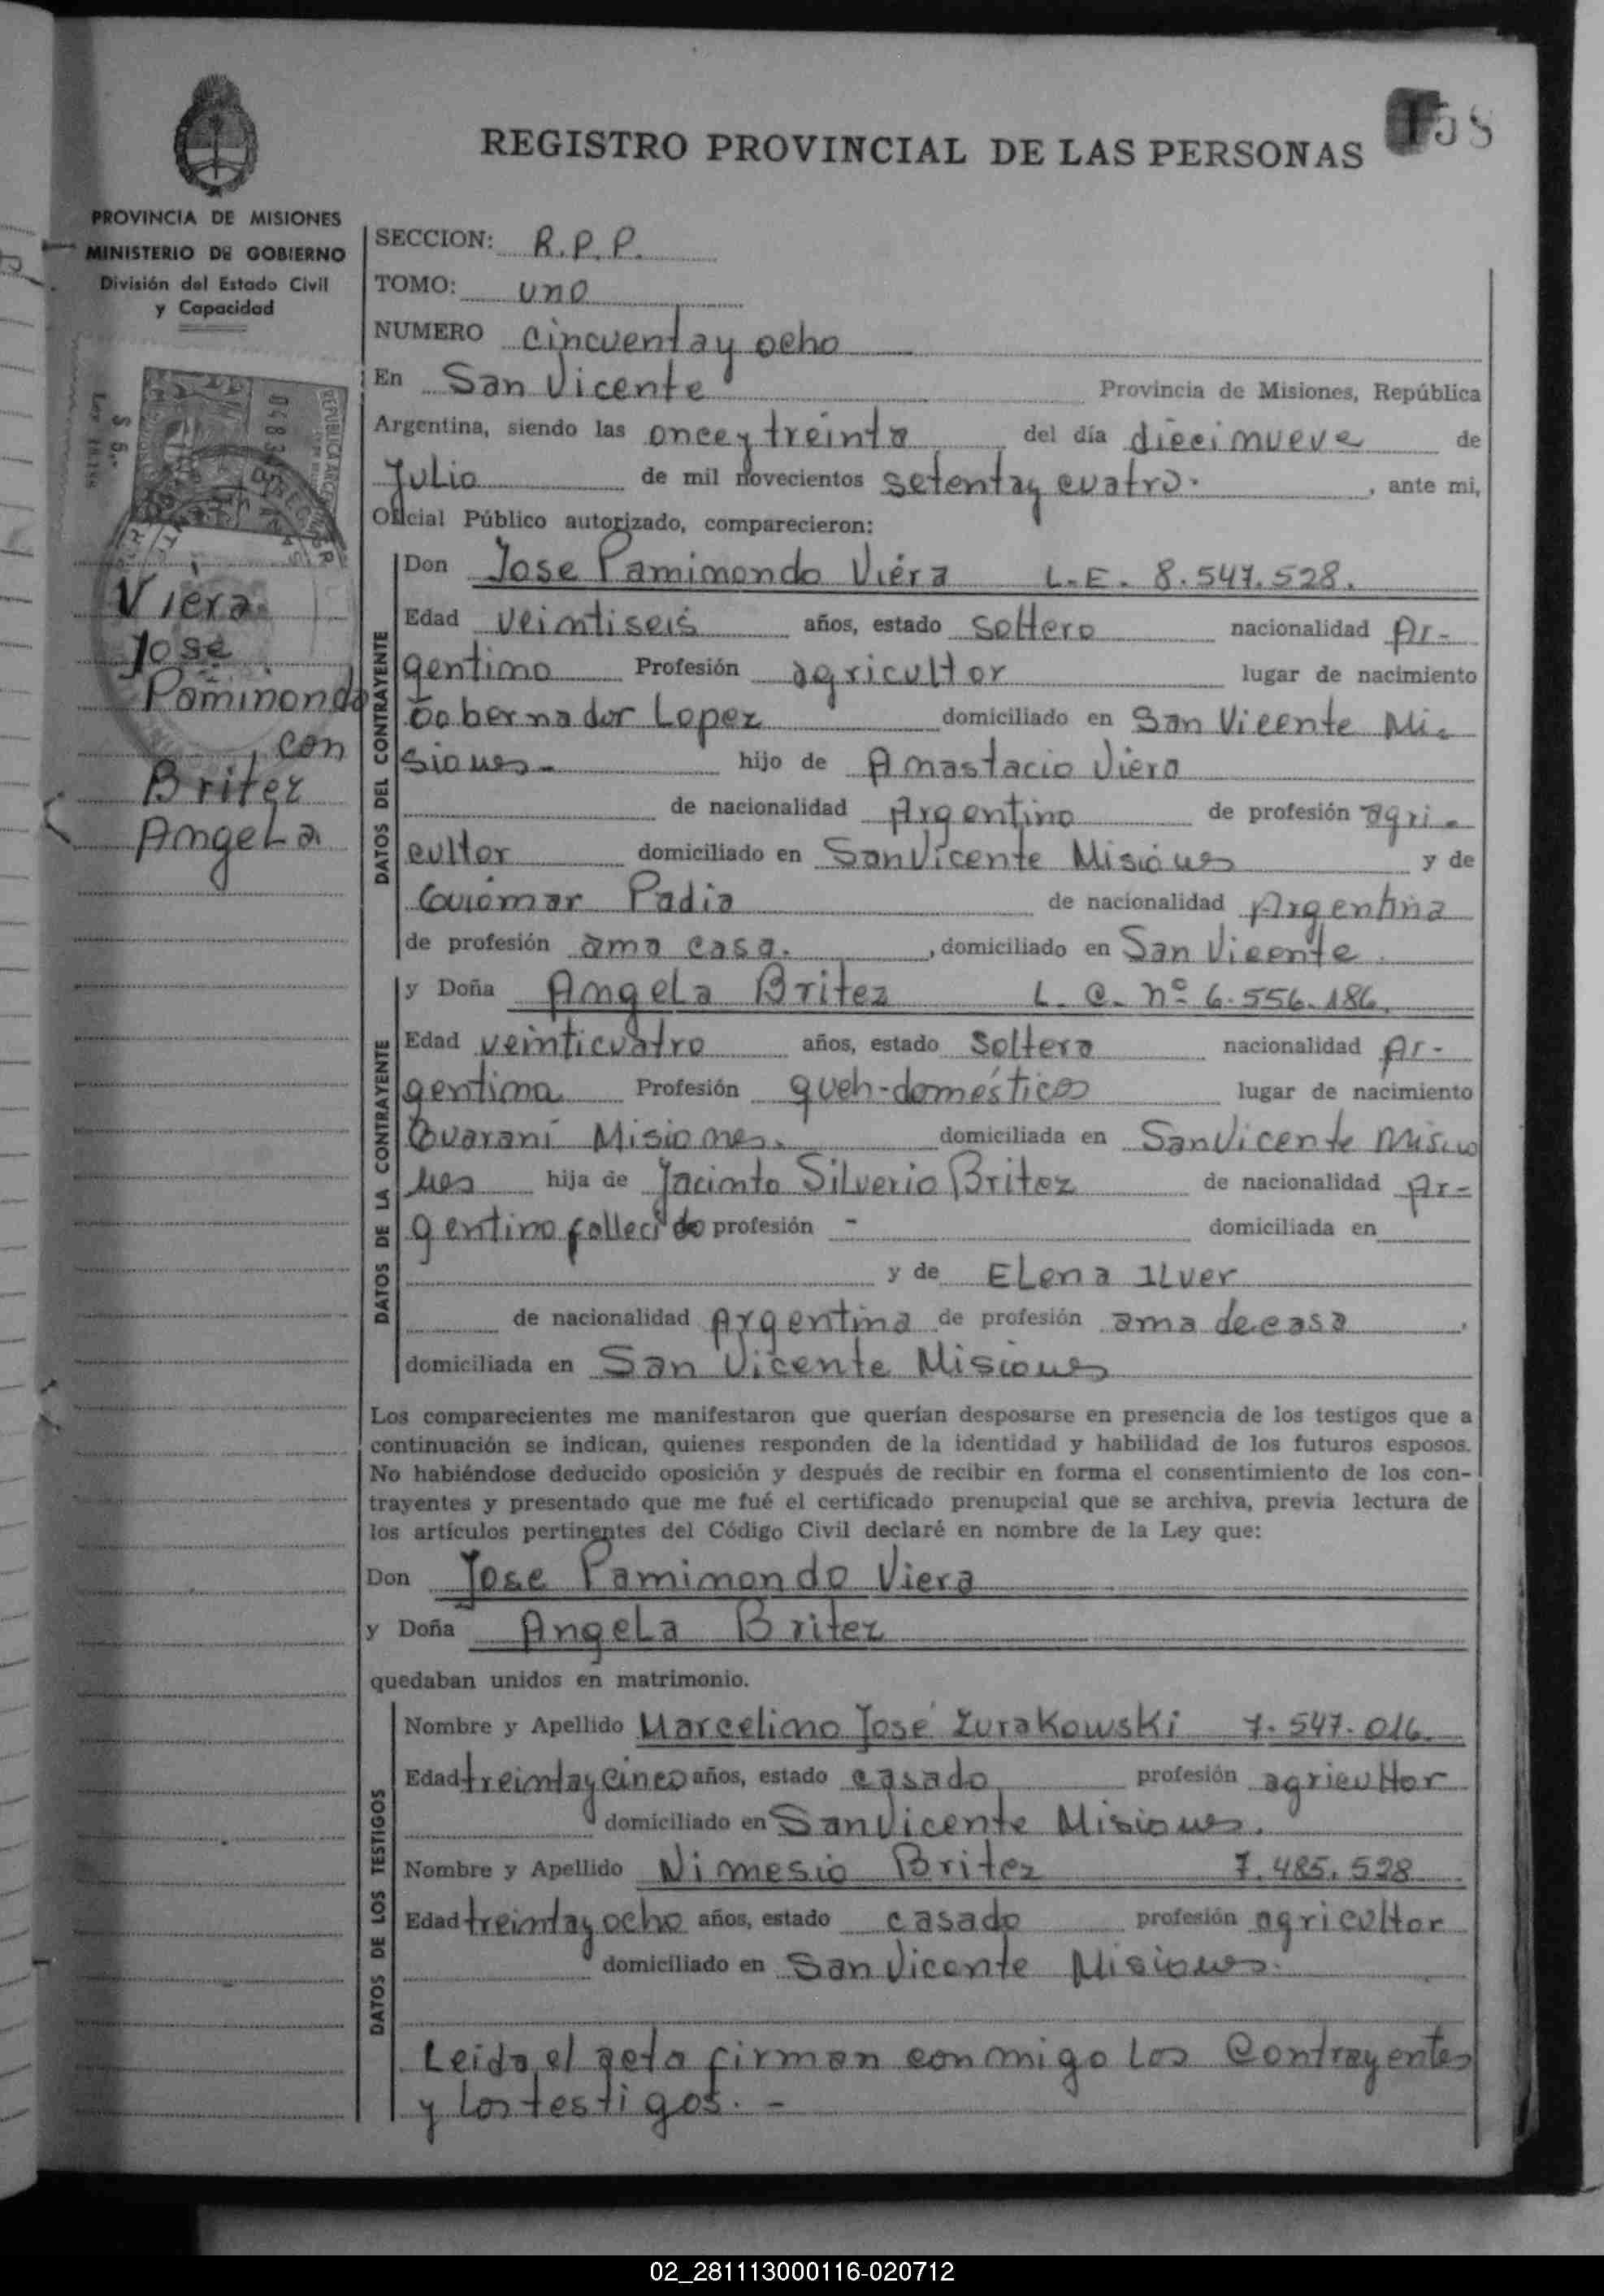 58
REGISTRO PROVINCIAL DE LAS PERSONAS
PROVINCIA DE MISIONES
MINISTERIO DE GOBIERNO
División del Estado Civil
y Capacidad
SECCION: R.P.P.
TOMO: uno
NUMERO cincuenta y ocho
En San Vicente Provincia de Misiones, República
Argentina, siendo las once y treinta del día diecinueve de
Julio de mil novecientos setenta y cuatro. , ante mi,
Oficial Público autorizado, comparecieron:
Viera
Jose
Paminondo
con
Britez
Angela
DATOS DEL CONTRAYENTE
Don Jose Pamimondo Viera L.E. 8.547.528.
Edad veintiseis años, estado soltero nacionalidad Ar-
gentino Profesión agricultor lugar de nacimiento
Gobernador Lopez domiciliado en San Vicente Mi-
siones.- hijo de Anastacio Viera
de nacionalidad Argentino de profesión agri-
cultor domiciliado en San Vicente Misiones y de
Guiomar Padia de nacionalidad Argentina
de profesión ama casa. , domiciliado en San Vicente.
DATOS DE LA CONTRAYENTE
y Doña Angela Britez L.C. nº 6.556.186.
Edad veinticuatro años, estado soltera nacionalidad Ar-
gentina Profesión queh-domésticos lugar de nacimiento
Guaraní Misiones. domiciliada en San Vicente Misio
nes hija de Jacinto Silverio Britez de nacionalidad Ar-
gentino fallecido profesión - domiciliada en
y de Elena Ilver
de nacionalidad Argentina de profesión ama de casa ,
domiciliada en San Vicente Misiones
Los comparecientes me manifestaron que querían desposarse en presencia de los testigos que a
continuación se indican, quienes responden de la identidad y habilidad de los futuros esposos.
No habiéndose deducido oposición y después de recibir en forma el consentimiento de los con-
trayentes y presentado que me fué el certificado prenupcial que se archiva, previa lectura de
los artículos pertinentes del Código Civil declaré en nombre de la Ley que:
Don Jose Pamimondo Viera
y Doña Angela Britez
quedaban unidos en matrimonio.
DATOS DE LOS TESTIGOS
Nombre y Apellido Marcelino José Zurakowski 7.547.016.
Edad treinta y cinco años, estado casado profesión agricultor
domiciliado en San Vicente Misiones.
Nombre y Apellido Nimesio Britez 7.485.528
Edad treinta y ocho años, estado casado profesión agricultor
domiciliado en San Vicente Misiones.
Leida el acta firman conmigo los contrayentes
y los testigos. -
02_281113000116-020712